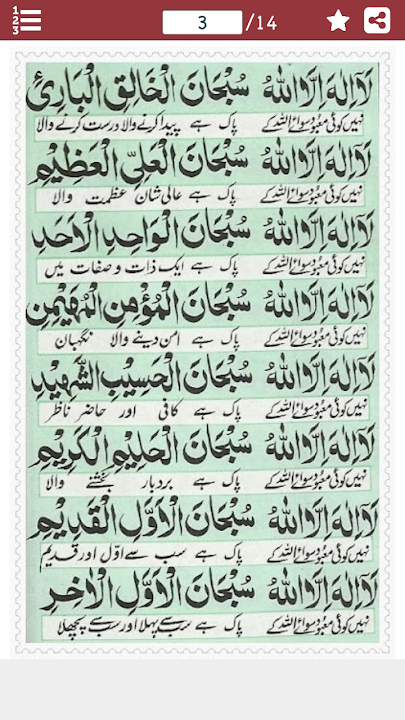 1 2 3
3 /14
لَاۤ اِلٰهَ اِلَّا اللّٰهُ سُبْحَانَ الْخَالِقِ الْبَارِئِ
نہیں کوئی معبود سوائے اللہ کے پاک ہے پیدا کرنے والا درست کرنے والا
لَاۤ اِلٰهَ اِلَّا اللّٰهُ سُبْحَانَ الْعَلِيِّ الْعَظِيْمِ
نہیں کوئی معبود سوائے اللہ کے پاک ہے عالی شان عظمت والا
لَاۤ اِلٰهَ اِلَّا اللّٰهُ سُبْحَانَ الْوَاحِدِ الْاَحَدِ
نہیں کوئی معبود سوائے اللہ کے پاک ہے ایک ذات و صفات میں
لَاۤ اِلٰهَ اِلَّا اللّٰهُ سُبْحَانَ الْمُؤْمِنِ الْمُهَيْمِنِ
نہیں کوئی معبود سوائے اللہ کے پاک ہے امن دینے والا نگہبان
لَاۤ اِلٰهَ اِلَّا اللّٰهُ سُبْحَانَ الْحَسِيْبِ الشَّهِيْدِ
نہیں کوئی معبود سوائے اللہ کے پاک ہے کافی اور حاضر ناظر
لَاۤ اِلٰهَ اِلَّا اللّٰهُ سُبْحَانَ الْحَلِيْمِ الْكَرِيْمِ
نہیں کوئی معبود سوائے اللہ کے پاک ہے بردبار بخشنے والا
لَاۤ اِلٰهَ اِلَّا اللّٰهُ سُبْحَانَ الْاَوَّلِ الْقَدِيْمِ
نہیں کوئی معبود سوائے اللہ کے پاک ہے سب سے اول اور قدیم
لَاۤ اِلٰهَ اِلَّا اللّٰهُ سُبْحَانَ الْاَوَّلِ الْاٰخِرِ
نہیں کوئی معبود سوائے اللہ کے پاک ہے سب سے پہلا اور سب سے پچھلا